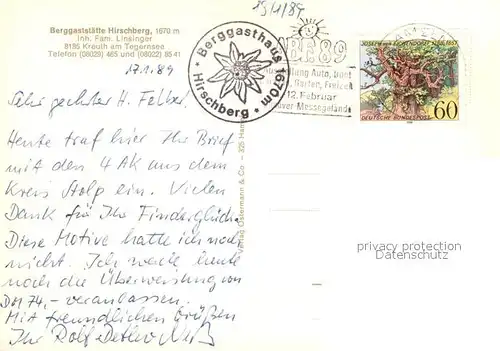 15/1/89
Berggaststätte Hirschberg, 1670 m
Inh. Fam. Linsinger
8185 Kreuth am Tegernsee
Telefon (08029) 465 und (08022) 8541
Berggasthaus 1670m
Hirschberg
89
Auto, Boot
Garten, Freizeit
12. Februar
Messegelände
JOSEPH VON EICHENDORFF 1788-1857
60
DEUTSCHE BUNDESPOST
17.1.89
Sehr geehrter H. Felber!
Heute traf hier Ihr Brief
mit den 4 AK aus dem
Kreis Stolp ein. Vielen
Dank für Ihr Finderglück.
Diese Motive hatte ich noch
nicht. Ich werde heute
noch die Überweisung von
DM 74,- veranlassen.
Mit freundlichen Grüßen
Ihr Rolf-Detlev
Verlag Ostermann & Co. - 325
privacy protection
Datenschutz